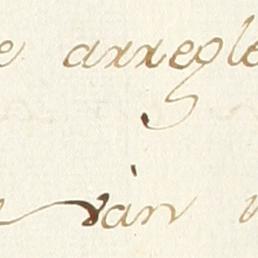 e arregle
ván